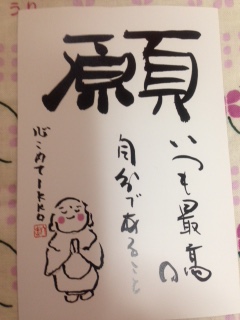 願
いつも最高の
自分であること
心こめて